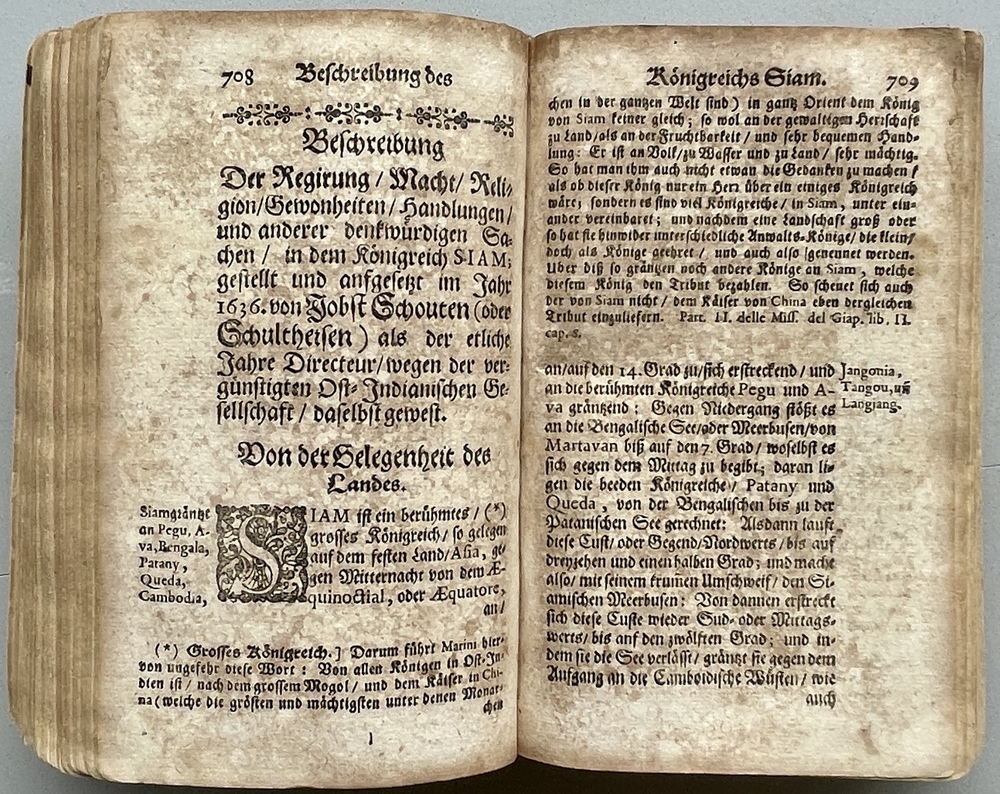 708 Beschreibung des
Beschreibung
Der Regirung / Macht / Reli-
gion / Gewonheiten / Handlungen /
und anderer denkwürdigen Sa-
chen / in dem Königreich SIAM;
gestellt und aufgesetzt im Jahr
1636. von Jobst Schouten (oder
Schultheisen) als der etliche
Jahre Directeur / wegen der ver-
günstigten Ost-Indianischen Ge-
sellschaft / daselbst gewest.
Von der Gelegenheit des
Landes.
Siam gräntzt
an Pegu, A-
va, Bengala,
Patany,
Queda,
Cambodia,
SIAM ist ein berühmtes / (*)
grosses Königreich / so gelegen
auf dem festen Land / Asia, ge-
gen Mitternacht von dem Æ-
quinoctial, oder Æquatore,
an /
(*) Grosses Königreich.] Darum führt Marini hier-
von ungefehr diese Wort: Von allen Königen in Ost-In-
dien ist / nach dem grossem Mogol / und dem Käiser in Chi-
na (welche die grösten und mächtigsten unter denen Monar-
chen
Königreichs Siam. 709
chen in der gantzen Welt sind) in gantz Orient dem König
von Siam keiner gleich; so wol an der gewaltigen Herrschaft
zu Land / als an der Fruchtbarkeit / und sehr bequemen Hand-
lung: Er ist an Volk / zu Wasser und zu Land / sehr mächtig.
So hat man ihm auch nicht etwan die Gedanken zu machen /
als ob dieser König nur ein Herr über ein einiges Königreich
wäre; sondern es sind viel Königreiche / in Siam, unter ein-
ander vereinbaret; und nachdem eine Landschaft groß oder
so hat sie hinwider unterschiedliche Anwalts-Könige / die klein /
doch als Könige geehret / und auch also genennet werden.
Uber diß so gräntzen noch andere Könige an Siam, welche
diesem König den Tribut bezahlen. So scheuet sich auch
der von Siam nicht / dem Käiser von China eben dergleichen
Tribut einzuliefern. Part. II. delle Miss. del Giap. lib. II.
cap. 5.
an / auf den 14. Grad zu / sich erstreckend / und
an die berühmten Königreiche Pegu und A-
va gräntzend: Gegen Niedergang stößt es
an die Bengalische See / oder Meerbusen / von
Martavan biß auf den 7. Grad / woselbst es
sich gegen dem Mittag zu begibt; daran li-
gen die beeden Königreiche / Patany und
Queda, von der Bengalischen bis zu der
Patanischen See gerechnet: Alsdann lauft
diese Cust / oder Gegend / Nordwerts / bis auf
dreyzehen und einen halben Grad; und macht
also / mit seinem krum̃en Umschweif / den Si-
amischen Meerbusen: Von dannen erstreckt
sich diese Custe wieder Sud- oder Mittags-
werts / bis auf den zwölften Grad; und in-
dem sie die See verlässt / gräntzt sie gegen dem
Aufgang an die Cambodische Wüsten / wie
auch
Jangonia,
Tangou, uñ
Langjang.